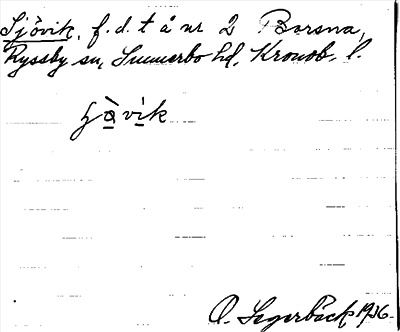 Sjövik, f.d.t å nr 2 Borsna,
Ryssby sn, Sunnerbo hd, Kronob. l.
ʃö̀vik
O. Segerbäck 1936.